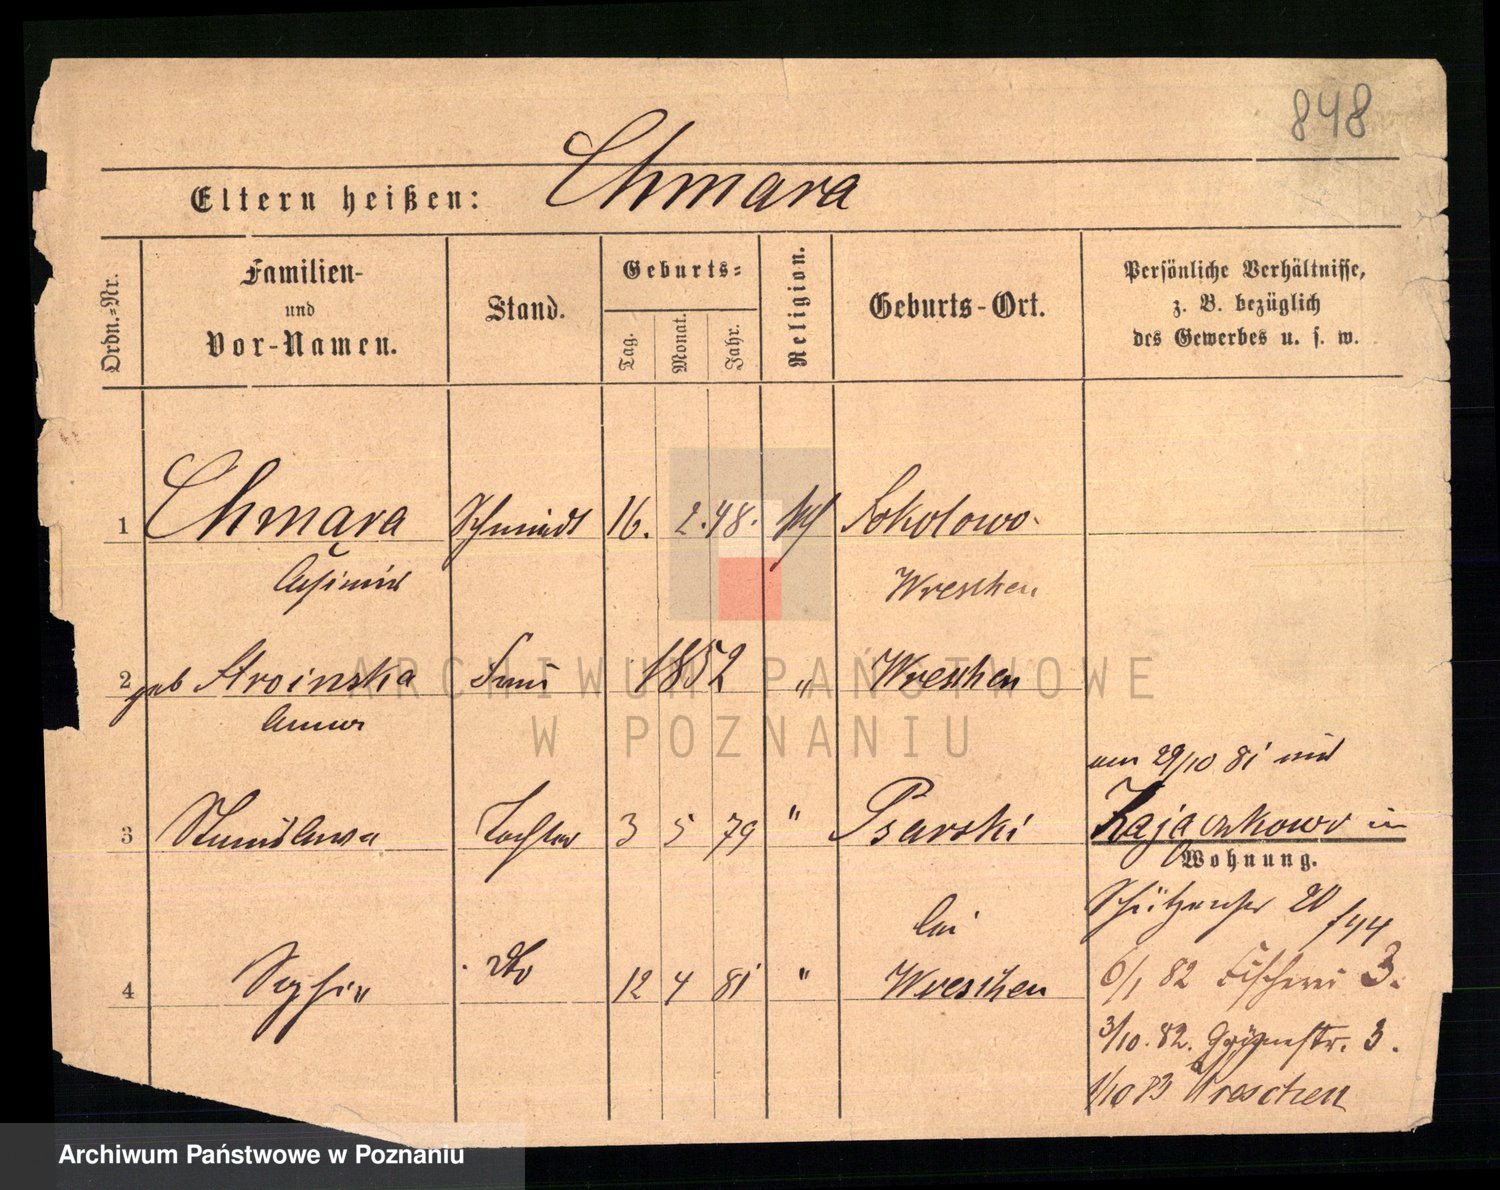 848
Eltern heißen: Chmara
Ordn.-Nr.
Familien-
und
Vor-Namen.
Stand.
Geburts-
Tag.
Monat.
Jahr.
Religion.
Geburts-Ort.
Persönliche Verhältnisse,
z. B. bezüglich
des Gewerbes u. s. w.
1 Chmara Schmidt 16. 2. 48. Sokolowo
Casimir Wreschen
2 geb Stroinska Frau 1852 " Wreschen
Anna
am 29/10 81 mit
3 Stanislawa Tochter 3 5 79 " Psarski Zajaczkowo in
Wohnung.
Schützenstr 20
bei
4 Sophie dto 12 4 81 " Wreschen
6/1 82 Fischerei 3.
3/10. 82. 3.
1/10 83 Wreschen
ARCHIWUM PAŃSTWOWE
W POZNANIU
Archiwum Państwowe w Poznaniu